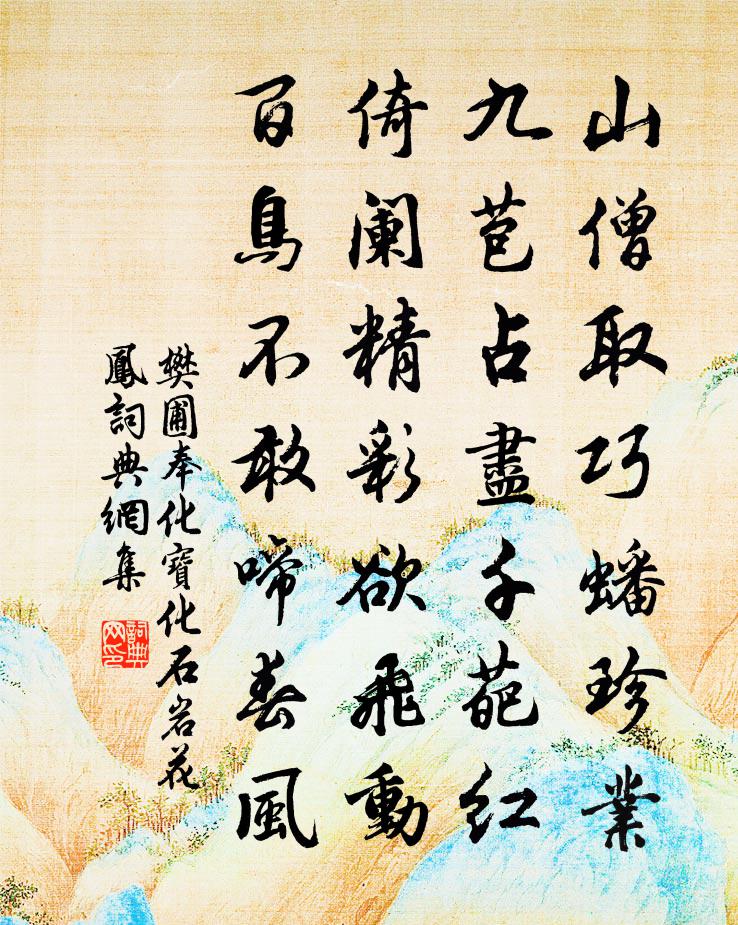 山僧取巧蟠珍叢
九苞占盡千葩紅
倚闌精彩欲飛動
百鳥不敢啼春風
樊圃奉化寶化石岩花
鳳詞典網集
詞典
网印